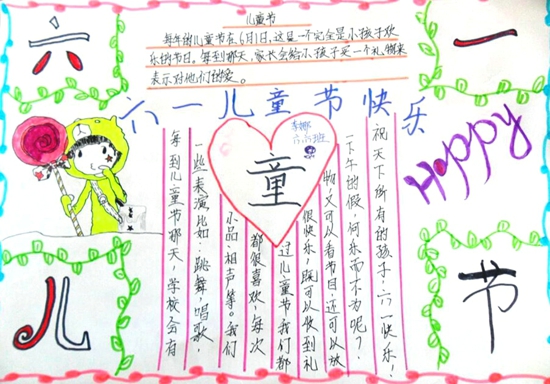 六
一
儿童节
每年的儿童节在6月1日,这是一个完全是小孩子欢
乐的节日。每到那天,家长会给小孩子买一个礼物来
表示对他们的爱。
六一儿童节快乐
李娜
童
Happy
每到儿童节那天,学校会有
一些表演比如:跳舞,唱歌,
小品,相声等。我们
都很喜欢,每次
过儿童节我们都
很快乐,既可以收到礼
物,又可以看节目,还可以放
一下午的假,何乐而不为呢?
祝天下所有的孩子:六一快乐!
儿
节